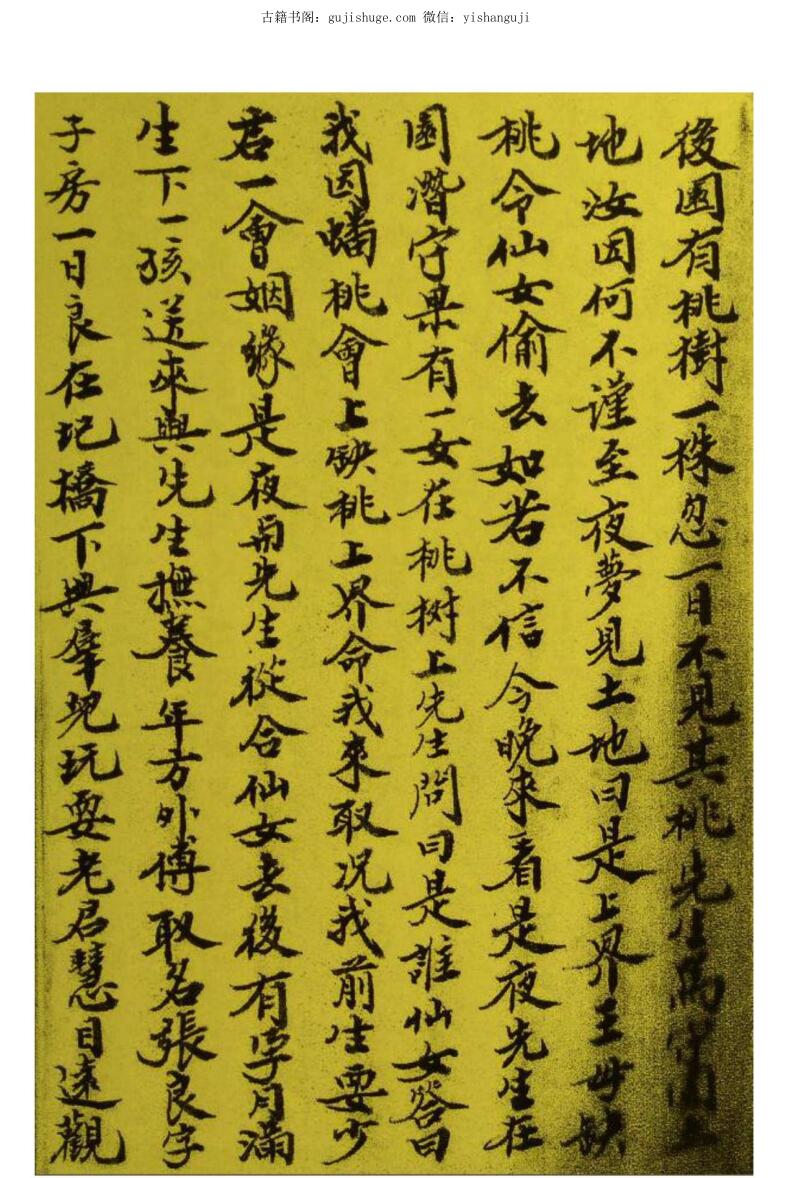 古籍书阁：gujishuge.com 微信：yishanguji
後園有桃樹一株忽一日不見其桃先生爲
地汝因何不謹至夜夢見土地曰是上界王母缺
桃令仙女偷去如若不信今晚來看是夜先生在
園潛守果有一女在桃树上先生問曰是誰仙女答曰
我因蟠桃會上缺桃上界命我來取况我前生要少
君一會姻緣是夜与先生從合仙女去後有孕月滿
生下一孩送來與先生撫養年方外傅取名張良字
子房一日良在圯橋下與羣児玩耍老君慧目遠觀